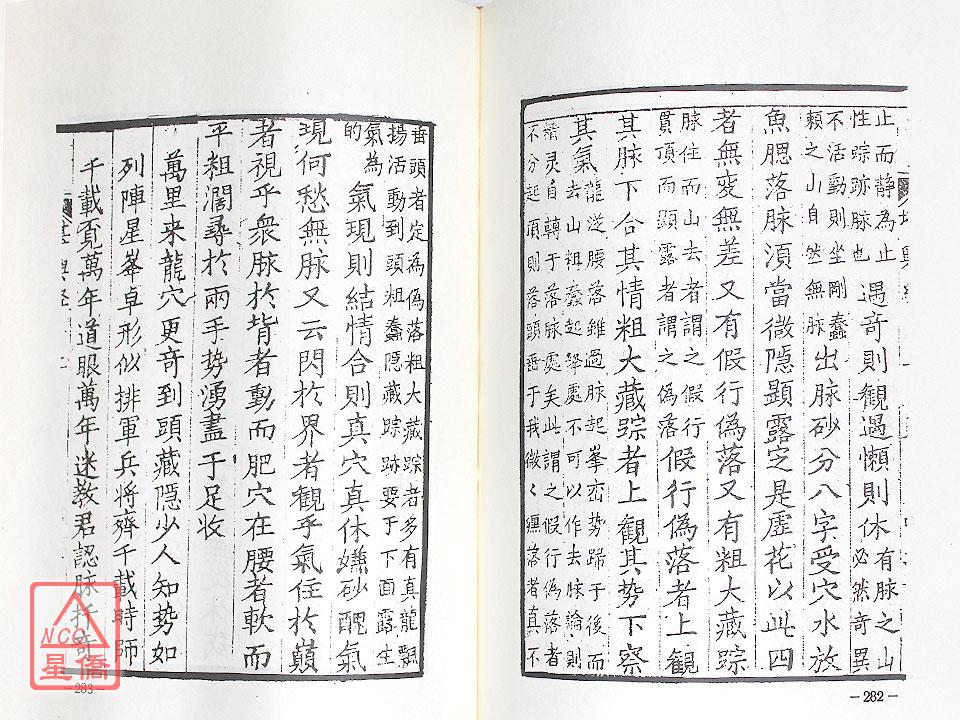 止而静為止
性踪跡脉也
遇奇則觀遇懶則休
有脉之山
必然奇異
不活動則坐剛蠢
賴之山自然無脉
出脉砂分八字受穴水放
魚腮落脉須當微隱顯露定是虛花以此四
者無変無差又有假行偽落又有粗大藏踪
脉住而山去者謂之假行
貫頂而顕露者謂之偽落
假行偽落者上觀
其脉下合其情粗大藏踪者上觀其势下察
其氣
龍逆腰落雖過脉起峯峦势歸于後而
去山粗蠢起舉處不可以作去脉論則
情灵自轉于落脉處矣此謂之假行偽落
不分起頂則落頭垂于我微〻纏落者真不
番頭者定為偽落粗大藏踪者多有真龍飄
揚活動到頭粗蠢隱藏踪跡要于下面露生
氣為
的
氣現則結情合則真穴真休嫌砂醜氣
現何愁無脉又云閃於界者觀乎氣住於巔
者視乎衆脉於背者動而肥穴在腰者軟而
平粗濶尋於兩手势湧盡于足收
萬里来龍穴更奇到頭藏隱少人知势如
列陣星峯卓形似排軍兵將齊千載時師
千載覓萬年道眼萬年迷教君認脉
NCC
星僑
－283－
－282－